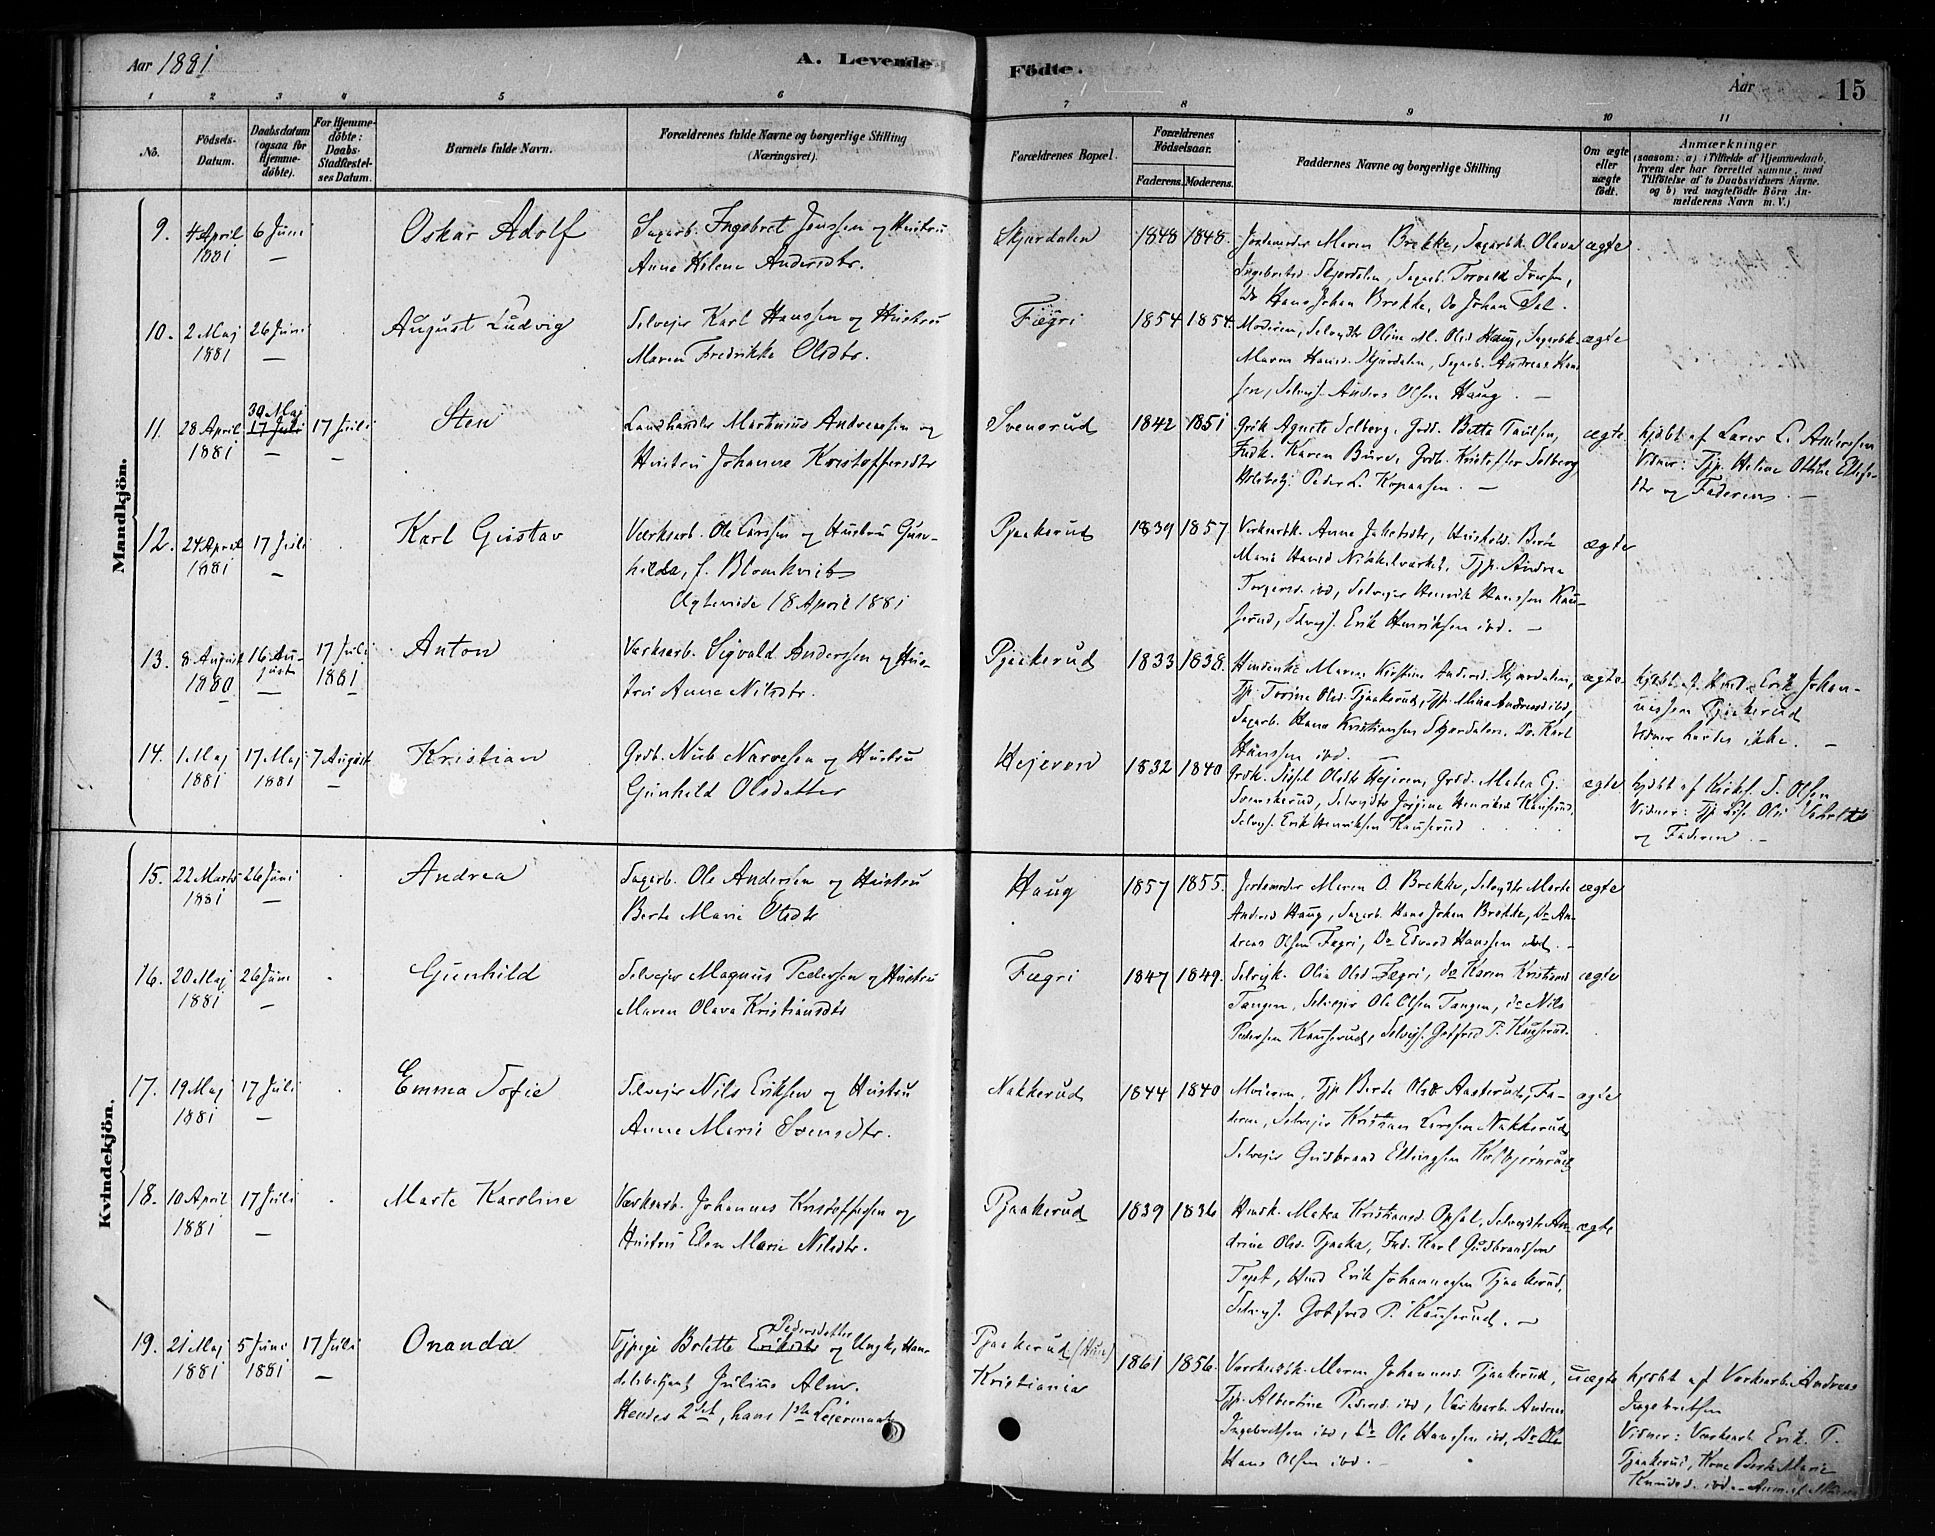 Aar 1881
A. Levende Födte.
Aar
15
1 2 3 4 5 6 7 8 9 10 11
No.
Födsels-Datum.
Daabsdatum (ogsaa for Hjemme-döbte).
For Hjemme-döbte: Daabs-Stadfæstel-ses Datum.
Barnets fulde Navn.
Forældrenes fulde Navne og borgerlige Stilling (Næringsvei).
Forældrenes Bopæl.
Forældrenes Födselsaar.
Faderens. Moderens.
Faddernes Navne og borgerlige Stilling
Om ægte eller uægte födt.
Anmærkninger
(saasom: a) i Tilfælde af Hjemmedaab,
hvem der har forrettet samme, med
Tilföielse af to Daabsvidners Navne.
og b) ved uægtefödte Börn An-
melderens Navn m. V.)
Mandkjön.
9. 4 April 1881 6 Juni Oskar Adolf
Sagarb. Ingebret Jenssen og Hustru
Anne Helene Andersdtr.
Skjærdalen 1848 1848.
Jordemoder Maren Brekke, Sagarbk. Olava
Ingebretsd. Skjærdalen, Sagarb. Torvald Iversen,
Do Hans Johan Brekke, Do Johan Dal.
ægte
10. 2 Maj 1881 26 Juni August Ludvig
Selvejer Karl Hanssen og Hustru
Maren Fredrikke Olsdtr.
Fægri 1854 1854.
Moderen, Selvejdtr Oline M. Olsd. Haug, Sagarbk.
Maren Hansd. Skjærdalen, Sagarb. Andreas Hans
sen, Selvejs. Anders Olsen Haug. —
ægte
11. 28 April 1881 30 Maj 17 Juli 17 Juli Sten
Landhandler Martinius Andreassen og
Hustru Johanne Kristoffersdtr
Svenerud 1842 1851
Grdk Agnete Solberg, Grdd. Betta Paulsen,
Frøk. Karen Bure, Grdb. Kristoffer Solberg,
Peder L.
ægte.
hjdbt af Lærer L. Anderssen
Vidner: Tjp. Helene Othilie Ellefs-
dtr og Faderen. —
12. 24 April 1881 17 Juli Karl Gustav
Værksarb. Ole Larssen og Hustru Gun-
hilda, f. Blomkvist
Ægteviede 18 April 1881
Pjaakerud 1839 1857
Værksarbk. Anne Hushold. Berte
Marie Hansd Nikkelværket, Tjp. Andrea
Torgersd. ibd, Selvejer Henrik Hanssen Kau-
serud, Selvejs. Erik Henriksen ibd. —
ægte
13. 8 August 1880 16 Au-gust 17 Juli 1881 Anton
Værksarb. Sigvald Anderssen og Hus-
tru Anne Nilsdtr.
Pjaakerud 1833 1838.
Husmenke Maren Kirstine Andersd. Skjærdalen,
Tjp. Torine Olsd. Pjaakerud, Tjp. Mina Andreasd ibd,
Sagarb. Hans Kristiansen Skjærdalen, Do. Karl
Hanssen ibd. —
ægte
hjdbt af Husm. Erik Johan-
nessen Pjaakerud
Vidner havdes ikke. —
14. 1 Maj 1881 17 Maj 1881 7 August Kristian
Grdb. Nub Narvesen og Hustru
Gunhild Olsdatter
Hejeren 1832 1840
Grdk. Sissel Olsdtr Hejeren, Grdd. Matea G.
Svenskerud, Selvejdtr Jørgine Henriksd Kauserud,
Selvejs. Erik Henriksen Kauserud
ægte
hjdbt af Kirkes. S. Olsen
Vidner: Tjp Lise Olsd
og Faderen. —
Kvindekjön.
15. 22 Marts 1881 26 Juni Andrea
Sagarb. Ole Andersen og Hustru
Berte Marie Olsdtr
Haug 1857 1855.
Jordemoder Maren O. Brekke, Selvejdtr Marte
Andersd Haug, Sagarb. Hans Johan Brekke, Do An-
dreas Olsen Fægri, Do Edvard Hanssen ibd. —
ægte
16. 20 Maj 1881 26 Juni Gunhild
Selvejer Magnus Pedersen og Hustru
Maren Olava Kristiansdtr
Fægri 1847 1849.
Selvejk. Olia Olsd Fægri, Do Karen Kristiansd
Tangen, Selvejer Ole Olsen Tangen, Do Nils
Pedersen Kauserud, Selvejs. Gotfred P. Kauserud.
ægte
17. 19 Maj 1881 17 Juli Emma Sofie
Selvejer Nils Eriksen og Hustru
Anne Marie Svensdtr.
Nakkerud 1844 1840
Moderen, Tjp Berte Olsdtr Aasterud, Fa-
deren, Selvejer Kristian Larssen Nakkerud
Selvejer Gudbrand Ellingsen
ægte
18. 10 April 1881 17 Juli Marte Karoline
Værksarb. Johannes Kristoffersen og
Hustru Elen Marie Nilsdtr.
Pjaakerud 1839 1836
Husk. Matea Kristiansd Opsal, Selvejdtr An-
drine Olsd. Pjaaka, Ind. Karl Gudbrandsen
Husm Erik Johannessen Pjaakerud,
Selvejs. Gotfred P. Kauserud. —
ægte
19. 21 Maj 1881 5 Juni 1881 17 Juli Onanda
Tjpige Bolette Eriksdtr Pedersdatter og Ungk. Han-
delsbetjent Julius Alm.
Hendes 2det, hans 1ste Lejermaal
Pjaakerud (Hun)
Kristiania
1861 1856.
Værksarbk. Maren Johannesd Pjaakerud,
Tjp. Albertine Pedersd ibd, Værksarb. Andreas
Ingebretsen ibd, Do Ole Hanssen ibd, Do Ole
Hans Olsen ibd. —
uægte
hjdbt af Værksarb. Andreas
Ingebretsen
Vidner: Værksarb Erik P.
Pjaakerud, Kone Berte Marie
Knudsd. ibd. — Anm. af Moderen